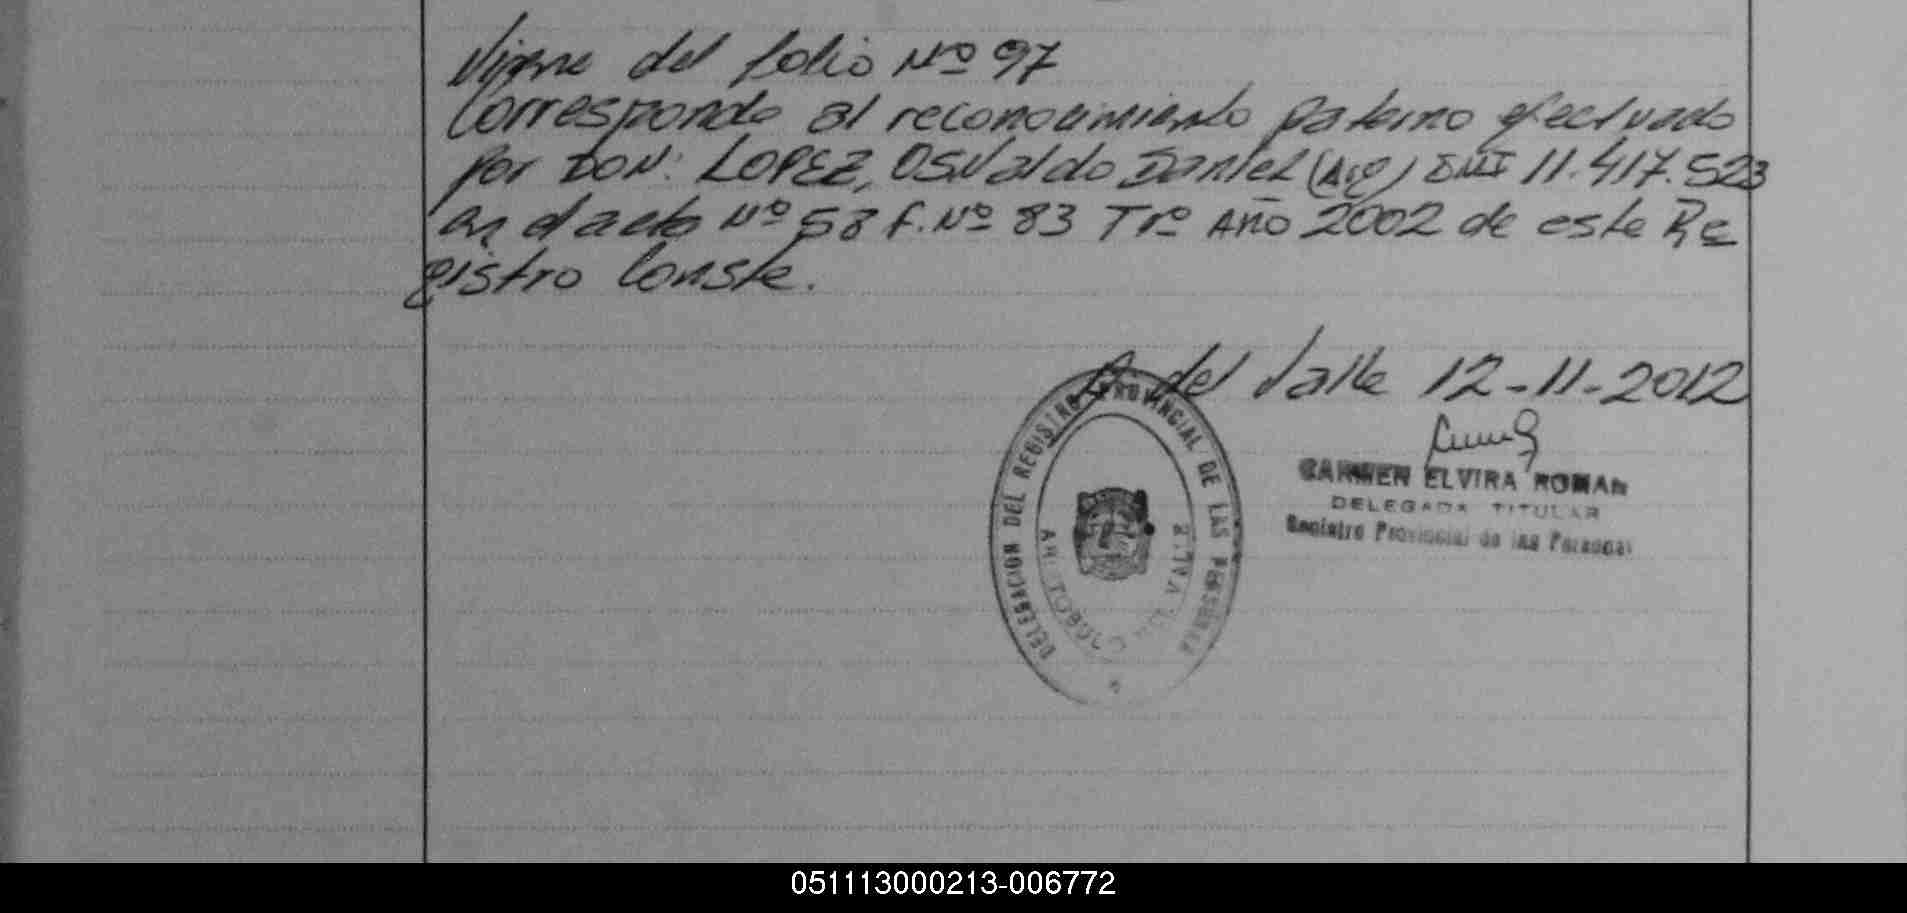 Viene del folio Nº 97
Corresponde al reconocimiento paterno efectuado
por DON: LOPEZ, Osvaldo Daniel (Arg) DNI 11.417.523
en el acta Nº 58 f. Nº 83 Tº Año 2002 de este Re
gistro Conste.
del Valle 12-11-2012
DELEGACION DEL REGISTRO PROVINCIAL DE LAS PERSONAS
ARISTOBULO DEL VALLE
CARMEN ELVIRA ROMAN
DELEGADA TITULAR
Registro Provincial de las Personas
051113000213-006772